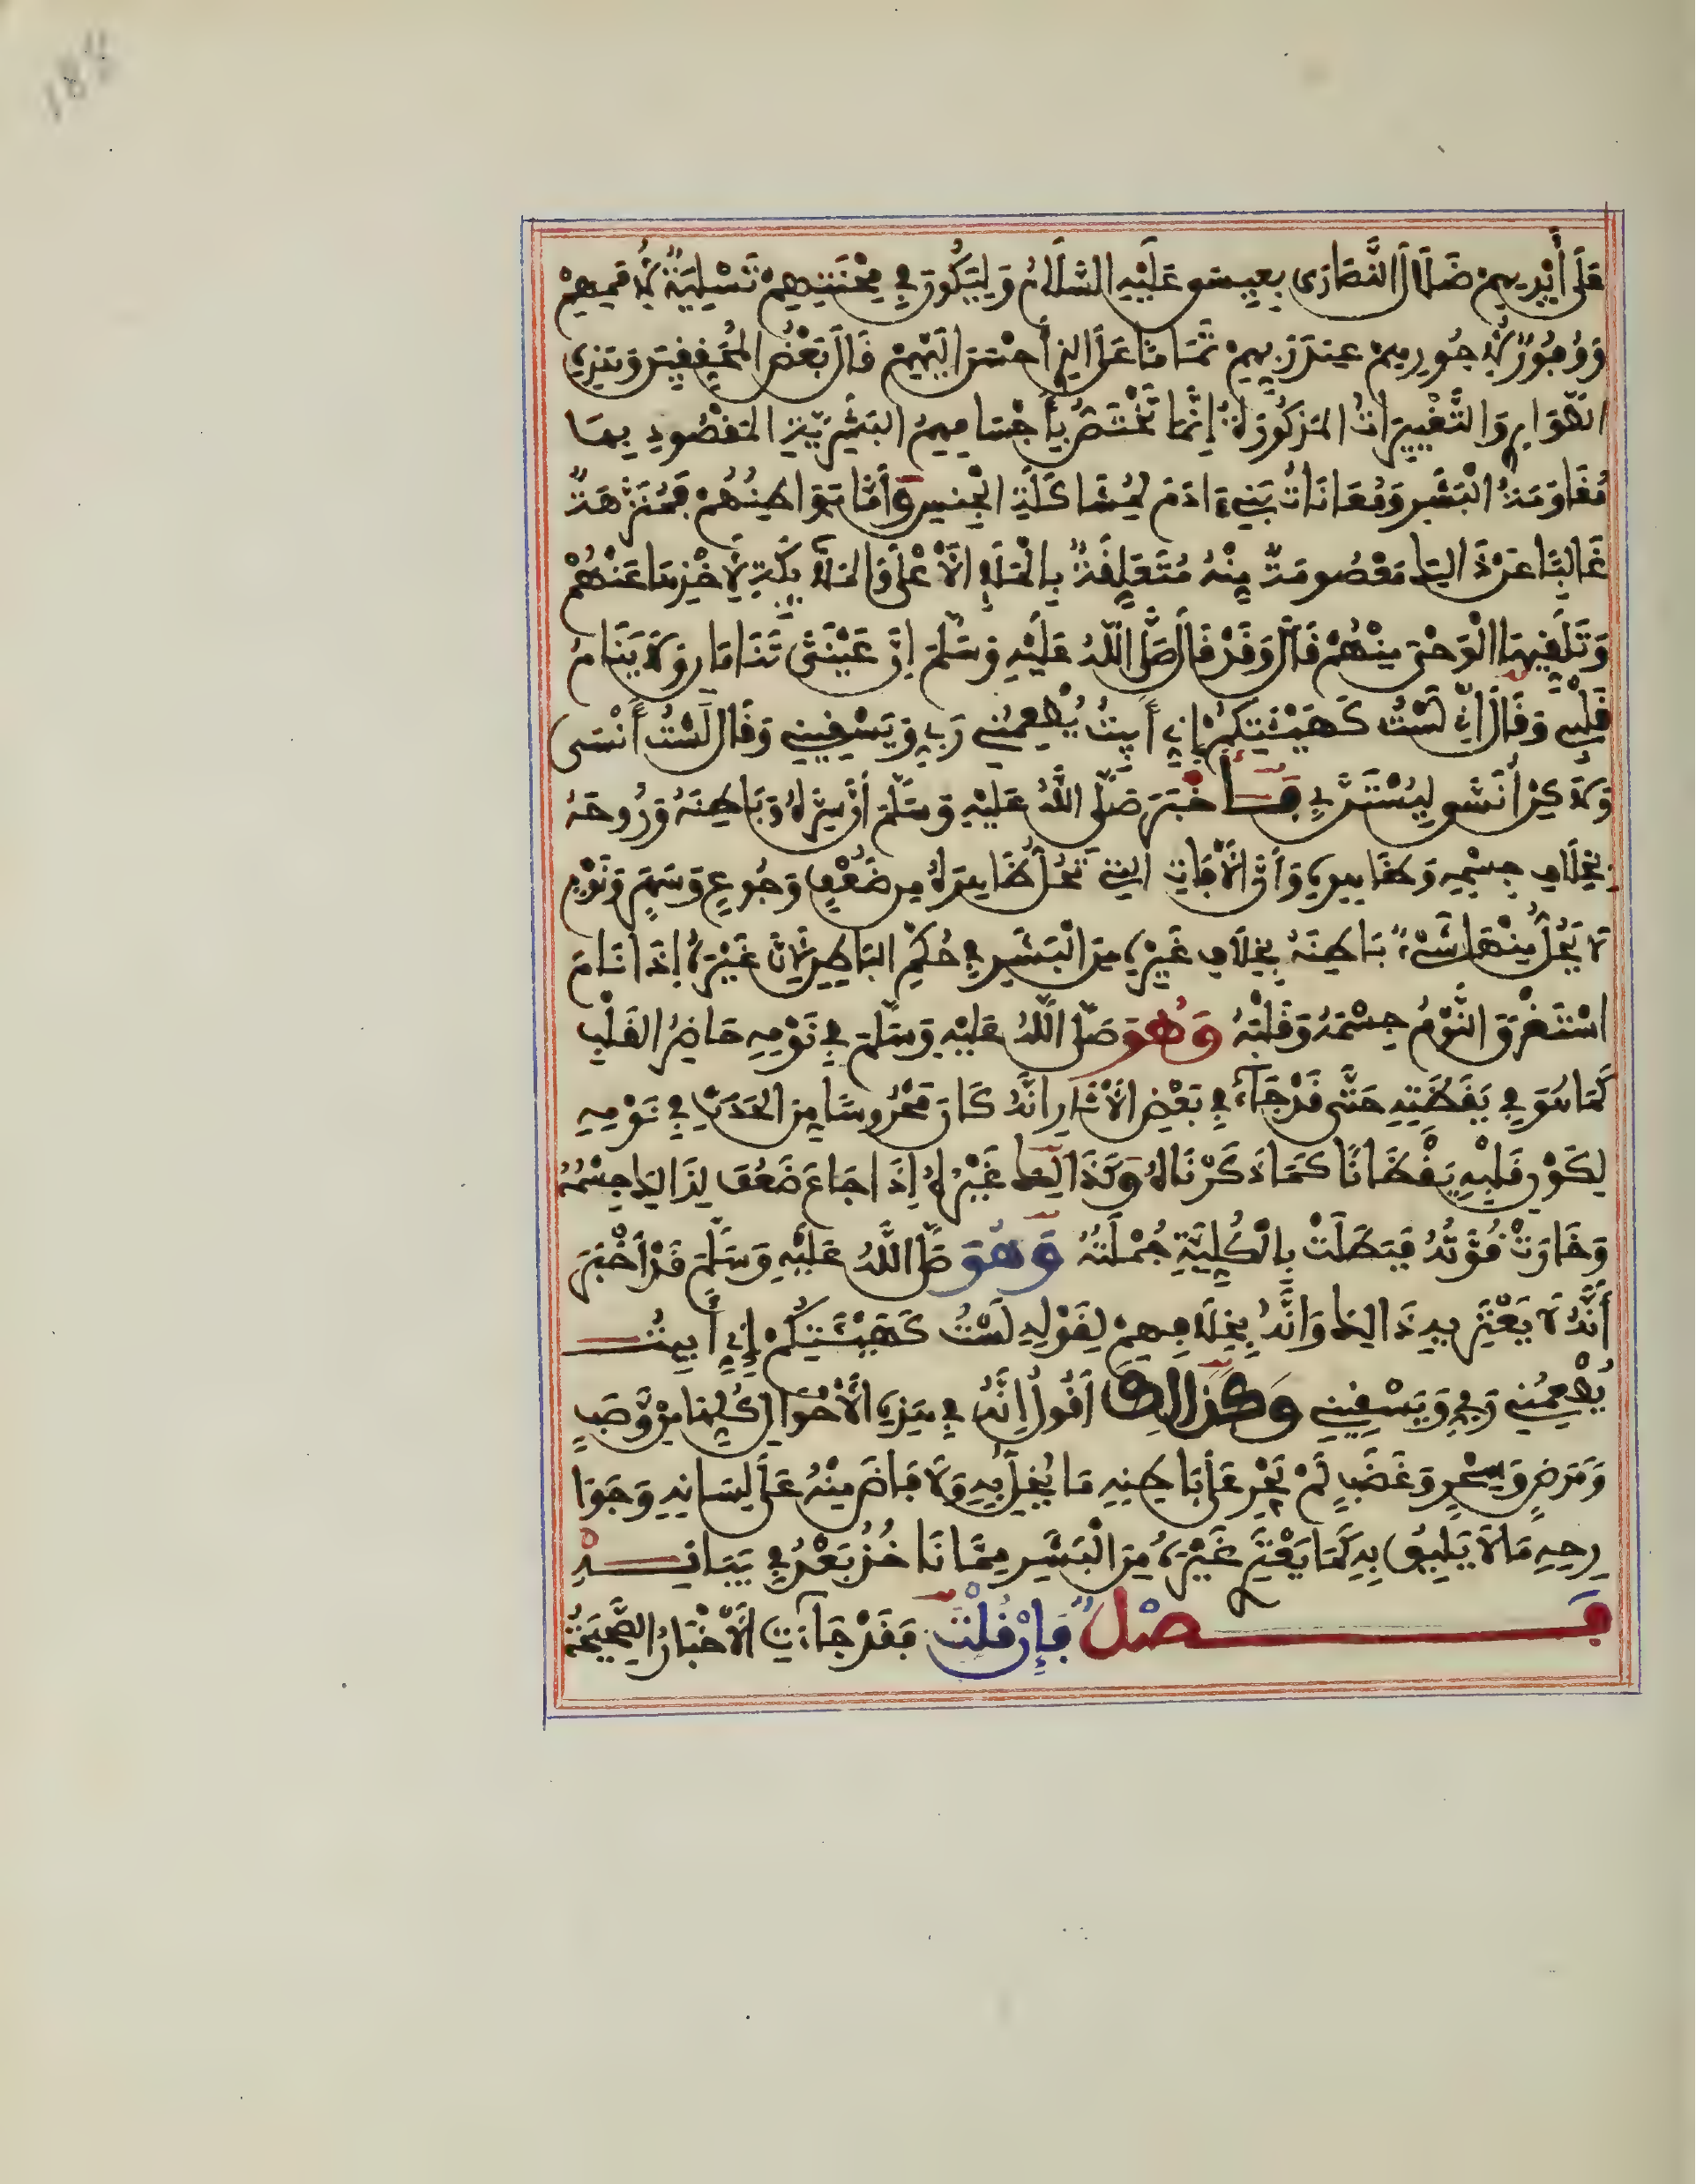 عَلَى أَيْدِيهِمْ ضَلَالَ النَّصَارَى بِعِيسَى عَلَيْهِ السَّلَامُ وَلِيَكُونَ فِي مِحْنَتِهِمْ تَسْلِيَةٌ لِأُمَمِهِمْ
وَوُفُورٌ لِأُجُورِهِمْ عِنْدَ رَبِّهِمْ تَمَامًا عَلَى الَّذِي أَحْسَنَ إِلَيْهِمْ قَالَ بَعْضُ الْمُحَقِّقِينَ وَهَذِهِ
الطَّوَارِي وَالتَّغْيِيرَاتُ الْمَذْكُورَةُ إِنَّمَا تَخْتَصُّ بِأَجْسَامِهِمُ الْبَشَرِيَّةِ الْمَقْصُودِ بِهَا
مُقَاوَمَةُ الْبَشَرِ وَمُعَانَاتُ بَنِي ءَادَمَ لِمُشَاكَلَةِ الْجِنْسِ وَأَمَّا بَوَاطِنُهُمْ فَمُنَزَّهَةٌ
غَالِبًا عَنْ ذَالِكَ مَعْصُومَةٌ مِنْهُ مُتَعَلِّقَةٌ بِالْمَلَإِ الْأَعْلَى وَالْمَلَائِكَةِ لِأَخْذِهَا عَنْهُمْ
وَتَلَقِّيهَا الْوَحْيَ مِنْهُمْ قَالَ وَقَدْ قَالَ صَلَّى اللَّهُ عَلَيْهِ وَسَلَّمَ إِنَّ عَيْنَيَّ تَنَامَانِ وَلَا يَنَامُ
قَلْبِي وَقَالَ إِنِّي لَسْتُ كَهَيْئَتِكُمْ إِنِّي أَبِيتُ يُطْعِمُنِي رَبِّي وَيَسْقِينِي وَقَالَ لَسْتُ أَنْسَى
وَلَاكِنْ أُنَسَّى لِيُسْتَنَّ بِي فَأَخْبَرَ صَلَّى اللَّهُ عَلَيْهِ وَسَلَّمَ أَنَّ سِرَّهُ وَبَاطِنَهُ وَرُوحَهُ
بِخِلَافِ جِسْمِهِ وَظَاهِرِهِ وَأَنَّ الْآفَاتِ الَّتِي تَحُلُّ ظَاهِرَهُ مِنْ ضَعْفٍ وَجُوعٍ وَسَهَرٍ وَنَوْمٍ
لَا يَحُلُّ مِنْهَا شَيْءٌ بَاطِنَهُ بِخِلَافِ غَيْرِهِ مِنَ الْبَشَرِ فِي حُكْمِ الْبَاطِنِ لِأَنَّ غَيْرَهُ إِذَا نَامَ
اسْتَغْرَقَ النَّوْمُ جِسْمَهُ وَقَلْبَهُ وَهُوَ صَلَّى اللَّهُ عَلَيْهِ وَسَلَّمَ فِي نَوْمِهِ حَاضِرُ الْقَلْبِ
كَمَا هُوَ فِي يَقَظَتِهِ حَتَّى قَدْ جَاءَ فِي بَعْضِ الْآثَارِ أَنَّهُ كَانَ مَحْرُوسًا مِنَ الْحَدَثِ فِي نَوْمِهِ
لِكَوْنِ قَلْبِهِ يَقْظَانًا كَمَا ذَكَرْنَاهُ وَكَذَالِكَ غَيْرُهُ إِذَا جَاعَ ضَعُفَ لِذَالِكَ جِسْمُهُ
وَخَارَتْ قُوَّتُهُ فَبَطَلَتْ بِالْكُلِّيَّةِ جُمْلَتُهُ وَهُوَ صَلَّى اللَّهُ عَلَيْهِ وَسَلَّمَ قَدْ أَخْبَرَ
أَنَّهُ لَا يَعْتَرِيهِ ذَالِكَ وَأَنَّهُ بِخِلَافِهِمْ لِقَوْلِهِ لَسْتُ كَهَيْئَتِكُمْ إِنِّي أَبِيتُ
يُطْعِمُنِي رَبِّي وَيَسْقِينِي وَكَذَالِكَ أَقُولُ إِنَّهُ فِي هَذِهِ الْأَحْوَالِ كُلِّهَا مِنْ وَصَبٍ
وَمَرَضٍ وَسِحْرٍ وَغَضَبٍ لَمْ يَجْرِ عَلَى بَاطِنِهِ مَا يُخِلُّ بِهِ وَلَا فَاضَ مِنْهُ عَلَى لِسَانِهِ وَجَوَا
رِحِهِ مَا لَا يَلِيقُ بِهِ كَمَا يَعْتَرِي غَيْرَهُ مِنَ الْبَشَرِ مِمَّا نَاخُذُ بَعْدُ فِي بَيَانِهِ
فَصْلٌ فَإِنْ قُلْتَ فَقَدْ جَاءَتِ الْأَخْبَارُ الصَّحِيحَةُ